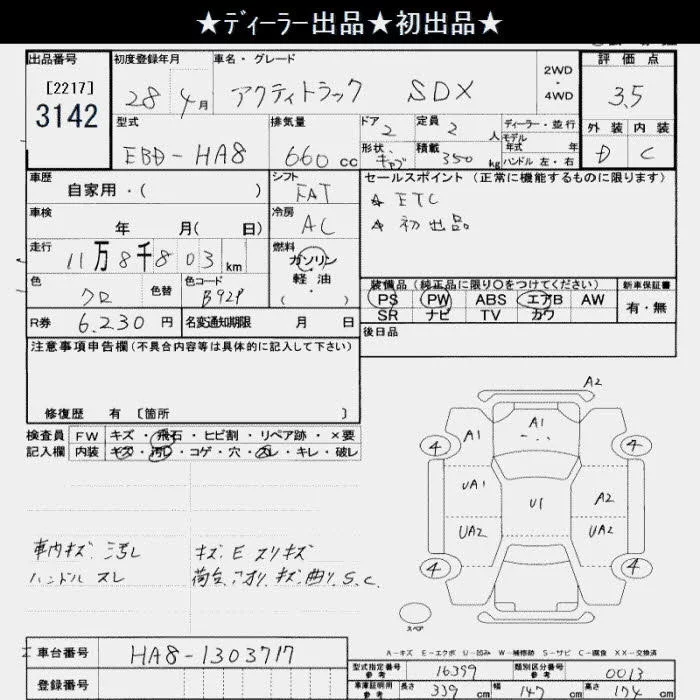 ★ディーラー出品★初出品★
出品番号 初度登録年月 車名・グレード 2WD・4WD 評価点
[2217] 3142 28 4月 アクティトラック SDX 3.5
型式 排気量 ドア 定員 ディーラー・並行 外装 内装
EBD-HA8 660cc 2 2人 モデル年式 年 D C
形状 キャブ 積載 350kg ハンドル 左・右
車歴 自家用・( ) シフト FAT セールスポイント (正常に機能するものに限ります)
車検 年 月( 日) 冷房 AC ☆ ETC
☆ 初出品
走行 11万8千803km 燃料 ガソリン・軽油・( )
色 クロ 色替 色コード B92P 装備品 (純正品に限り○をつけてください) 新車保証書
PS PW ABS エアB AW 有・無
SR ナビ TV カワ
R券 6.230円 名変通知期限 月 日 後日品
注意事項申告欄 (不具合内容等は具体的に記入して下さい)
修復歴 有 [箇所 ]
検査員 FW キズ・飛石・ヒビ割・リペア跡・×要
記入欄 内装 キズ・汚レ・コゲ・穴・スレ・キレ・破レ
A2
A1 A1
4 4
UA1 U1 A2
UA2 UA2
4 4
車内キズ 汚レ キズ.E スリキズ
ハンドル スレ 荷台.アオリ.キズ.曲リ.S.C.
スペア
A-キズ E-エクボ U-凹み W-補修跡 S-サビ C-腐食 XX-交換済
車台番号 HA8-1303717
登録番号
型式指定番号 参考 16399 類別区分番号 参考 0013
車庫証明用 参考 長さ 339cm 幅 147cm 高さ 174cm